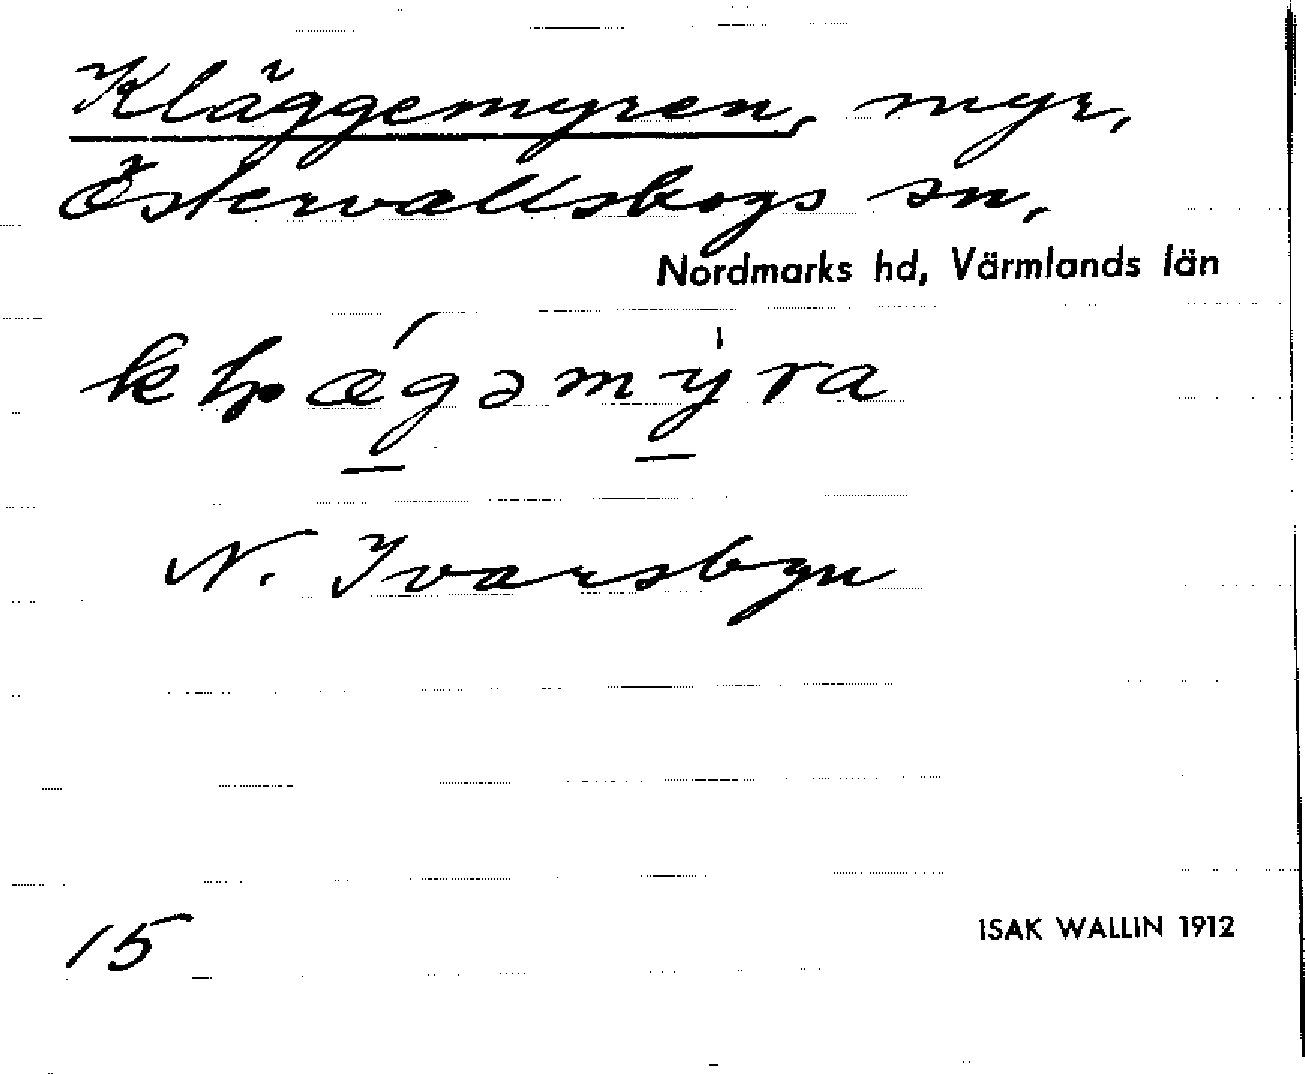 Kläggemyren, myr,
Östervallskogs sn,
Nordmarks hd, Värmlands län
N. Ivarsbyn
15
ISAK WALLIN 1912